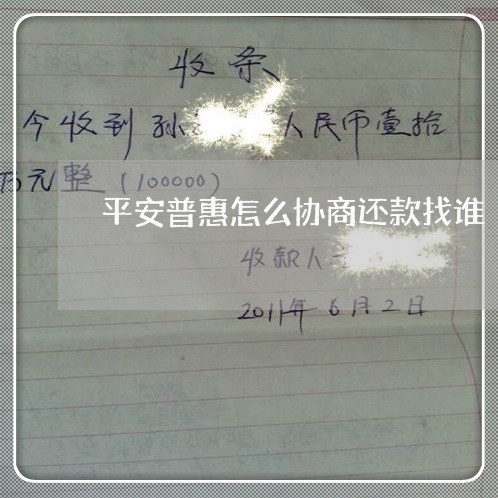 收条
今收到孙人民币壹拾
万元整（100000）
平安普惠怎么协商还款找谁
收款人
2011年6月2日